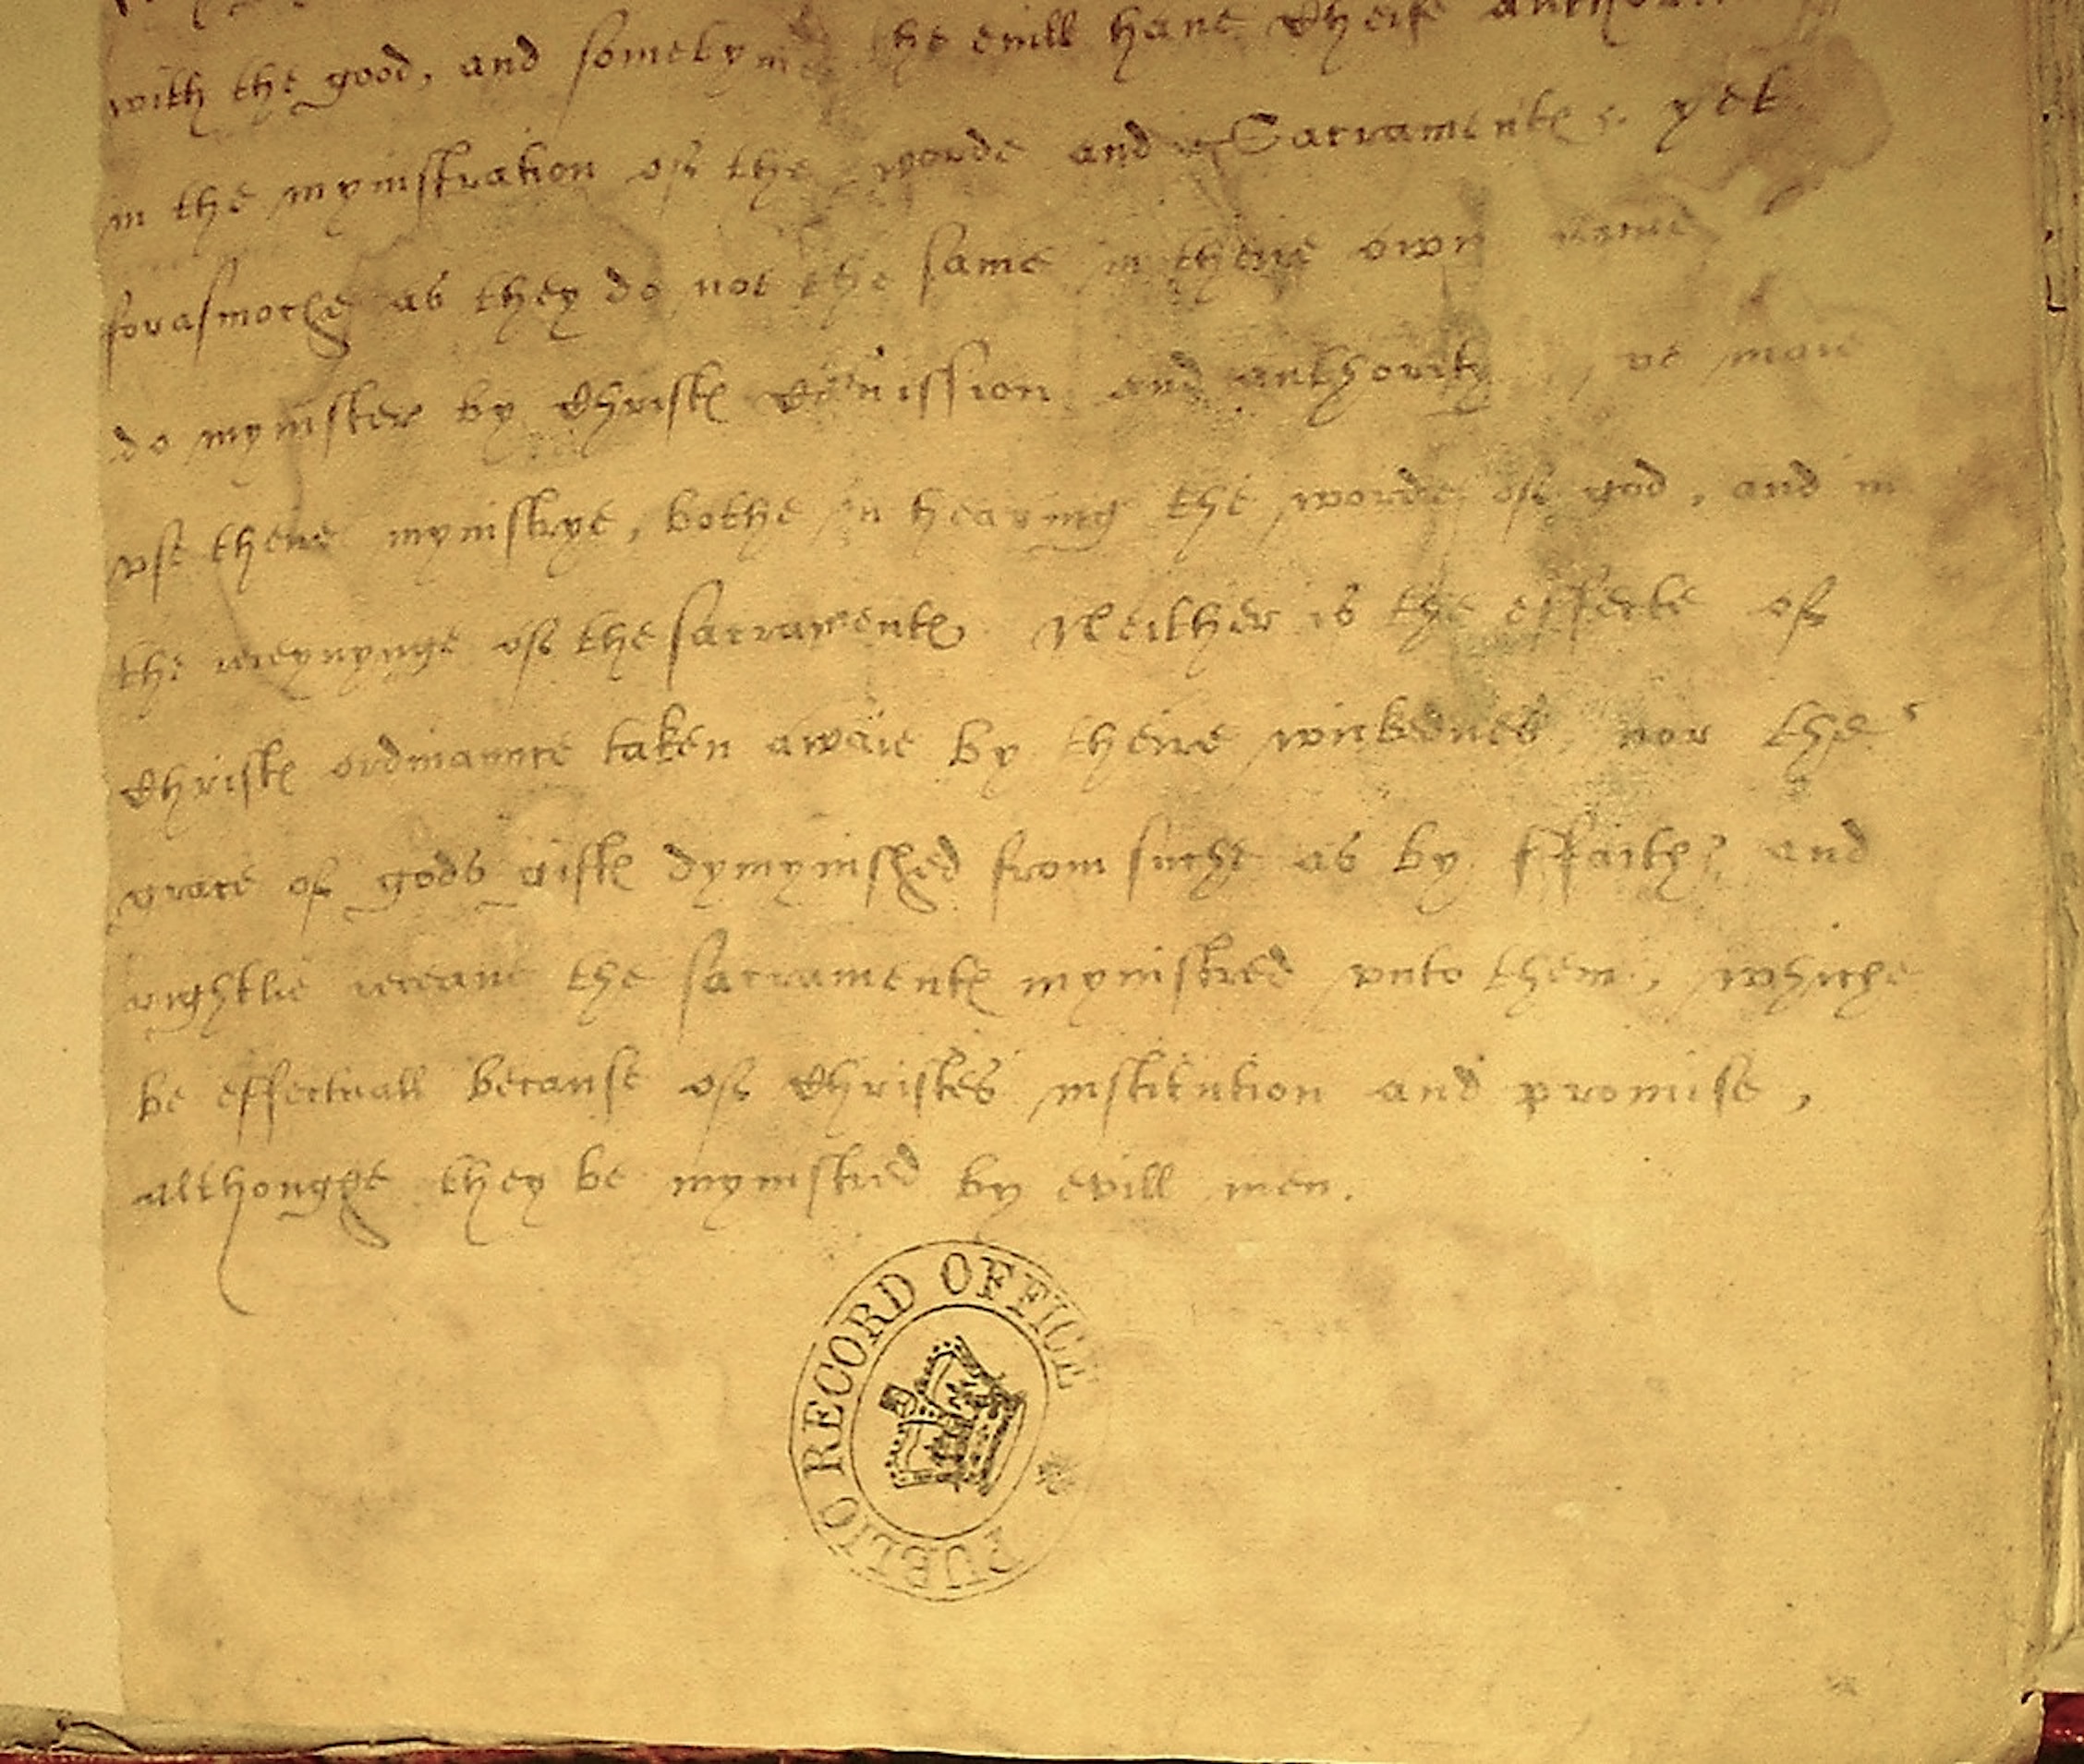 with the good, and sometyme the euill haue cheife authorit
in the mynistration of the worde and Sacramentes: yet
forasmoche as they do not the same in theire own name
do mynister by Christes comission and authority, we maie
vse theire mynistrye, bothe in hearing the worde of god, and in
the receyuynge of the sacramentes Neither is the effecte of
Christes ordinaunce taken awaie by theire wickednes, nor the
grace of gods giftes dymynished from suche as by ffaith and
rightlie receaue the sacramentes mynistred vnto them, whiche
be effectuall because of Christes institution and promise,
althoughe they be mynistred by evill men.
PUBLIC RECORD OFFICE